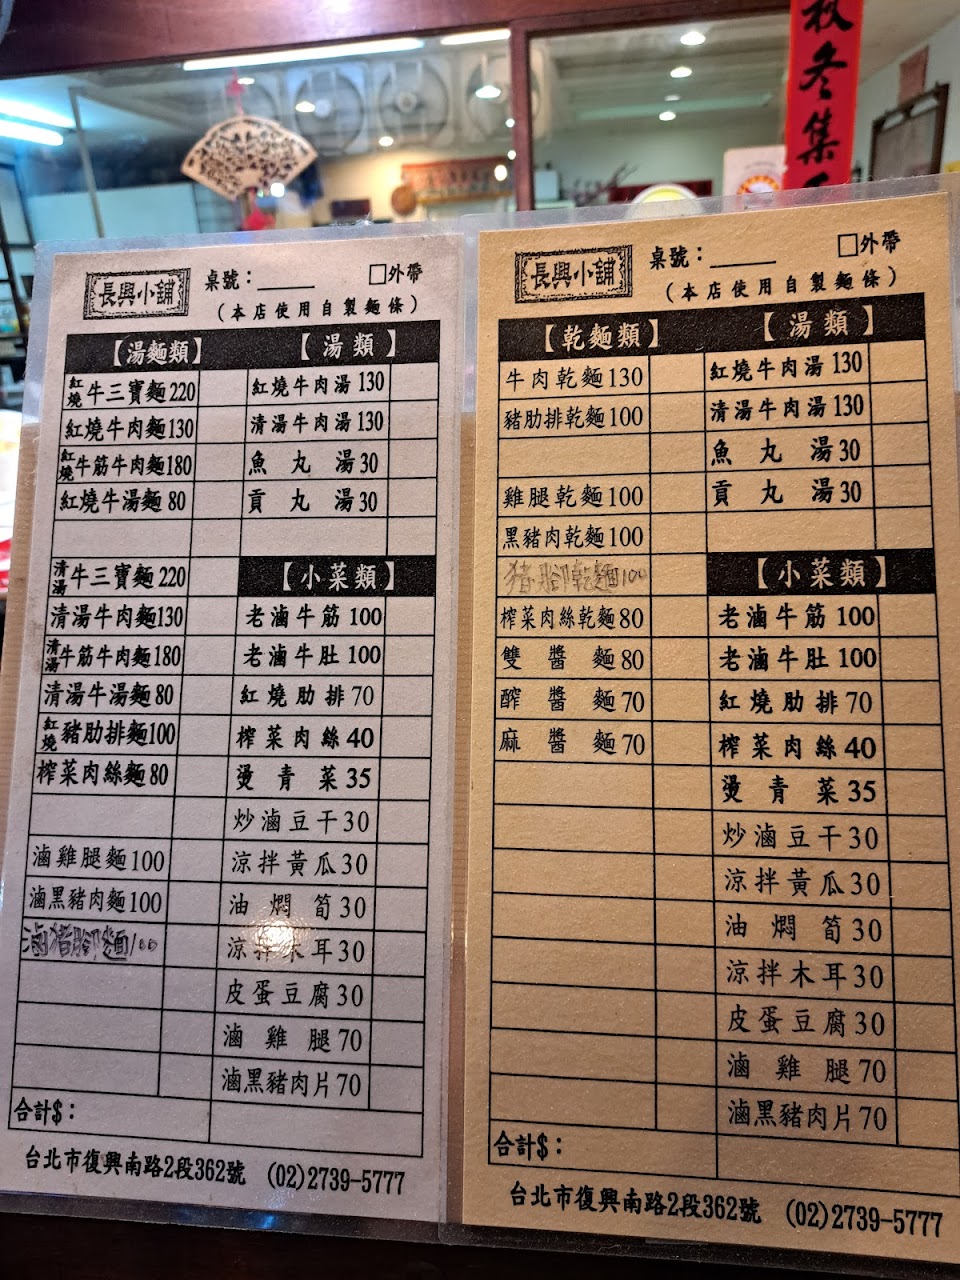 秋冬集
長興小舖
桌號：
□外帶
（本店使用自製麵條）
【湯麵類】 【湯類】
紅燒牛三寶麵220 紅燒牛肉湯130
紅燒牛肉麵130 清湯牛肉湯130
紅燒牛筋牛肉麵180 魚丸湯30
紅燒牛湯麵80 貢丸湯30
清湯牛三寶麵220 【小菜類】
清湯牛肉麵130 老滷牛筋100
清湯牛筋牛肉麵180 老滷牛肚100
清湯牛湯麵80 紅燒肋排70
紅燒豬肋排麵100 榨菜肉絲40
榨菜肉絲麵80 燙青菜35
炒滷豆干30
滷雞腿麵100 涼拌黃瓜30
滷黑豬肉麵100 油燜筍30
滷猪腳麵100 涼拌木耳30
皮蛋豆腐30
滷雞腿70
滷黑豬肉片70
合計$：
台北市復興南路2段362號 (02)2739-5777
長興小舖
桌號：
□外帶
（本店使用自製麵條）
【乾麵類】 【湯類】
牛肉乾麵130 紅燒牛肉湯130
豬肋排乾麵100 清湯牛肉湯130
魚丸湯30
雞腿乾麵100 貢丸湯30
黑豬肉乾麵100
猪腳乾麵100 【小菜類】
榨菜肉絲乾麵80 老滷牛筋100
雙醬麵80 老滷牛肚100
醡醬麵70 紅燒肋排70
麻醬麵70 榨菜肉絲40
燙青菜35
炒滷豆干30
涼拌黃瓜30
油燜筍30
涼拌木耳30
皮蛋豆腐30
滷雞腿70
滷黑豬肉片70
合計$：
台北市復興南路2段362號 (02)2739-5777